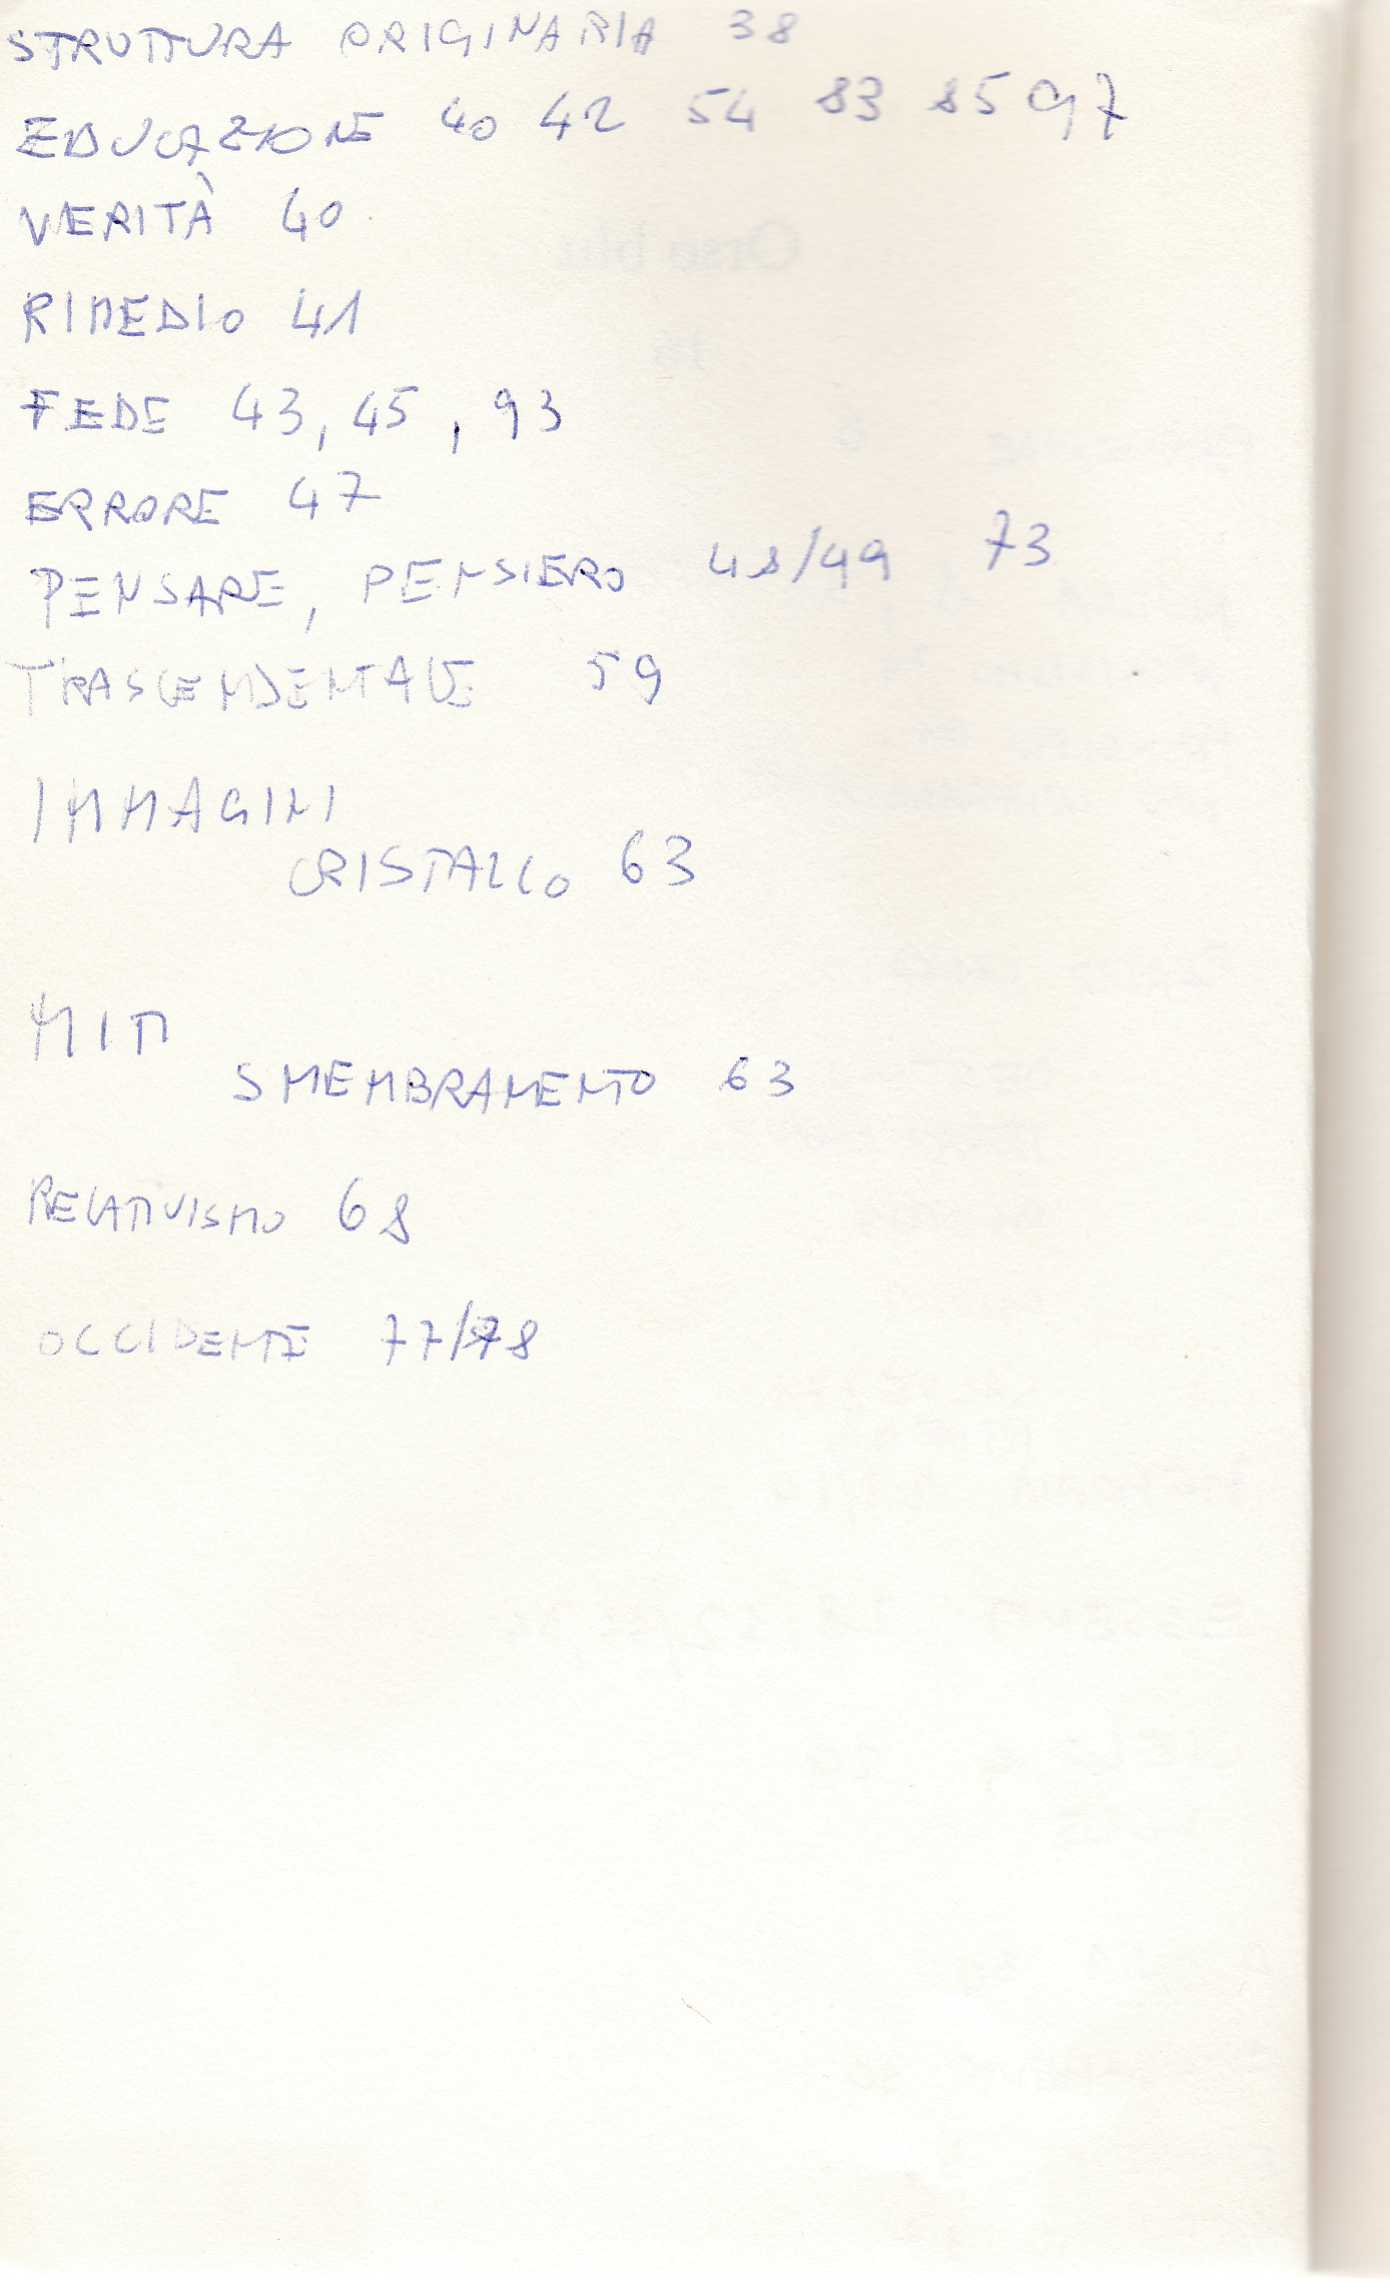 STRUTTURA ORIGINARIA 38
EDUCAZIONE 40 42 54 83 85 97
VERITÀ 40
RIMEDIO 41
FEDE 43, 45, 93
ERRORE 47
PENSARE, PENSIERO 48/49 73
TRASCENDENTALE 59
IMMAGINI
CRISTALLO 63
MITI
SMEMBRAMENTO 63
RELATIVISMO 68
OCCIDENTE 77/78